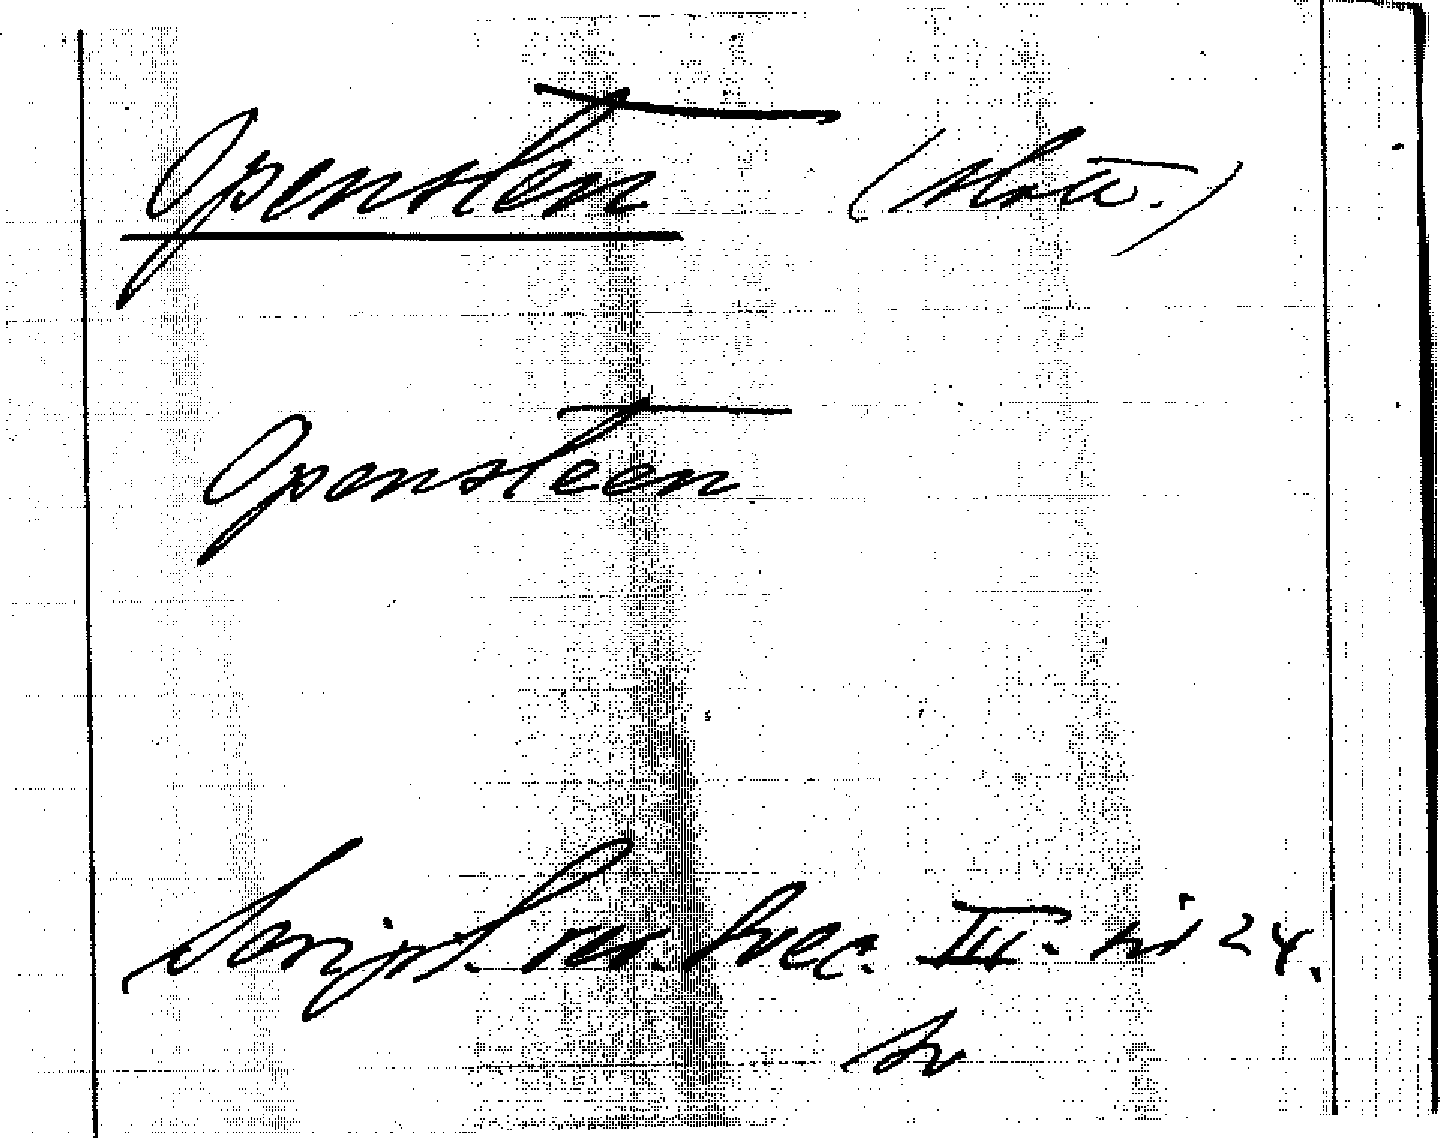 Opensten (slott.)
Opensteen
Script. rer. Svec. III. sid 24.